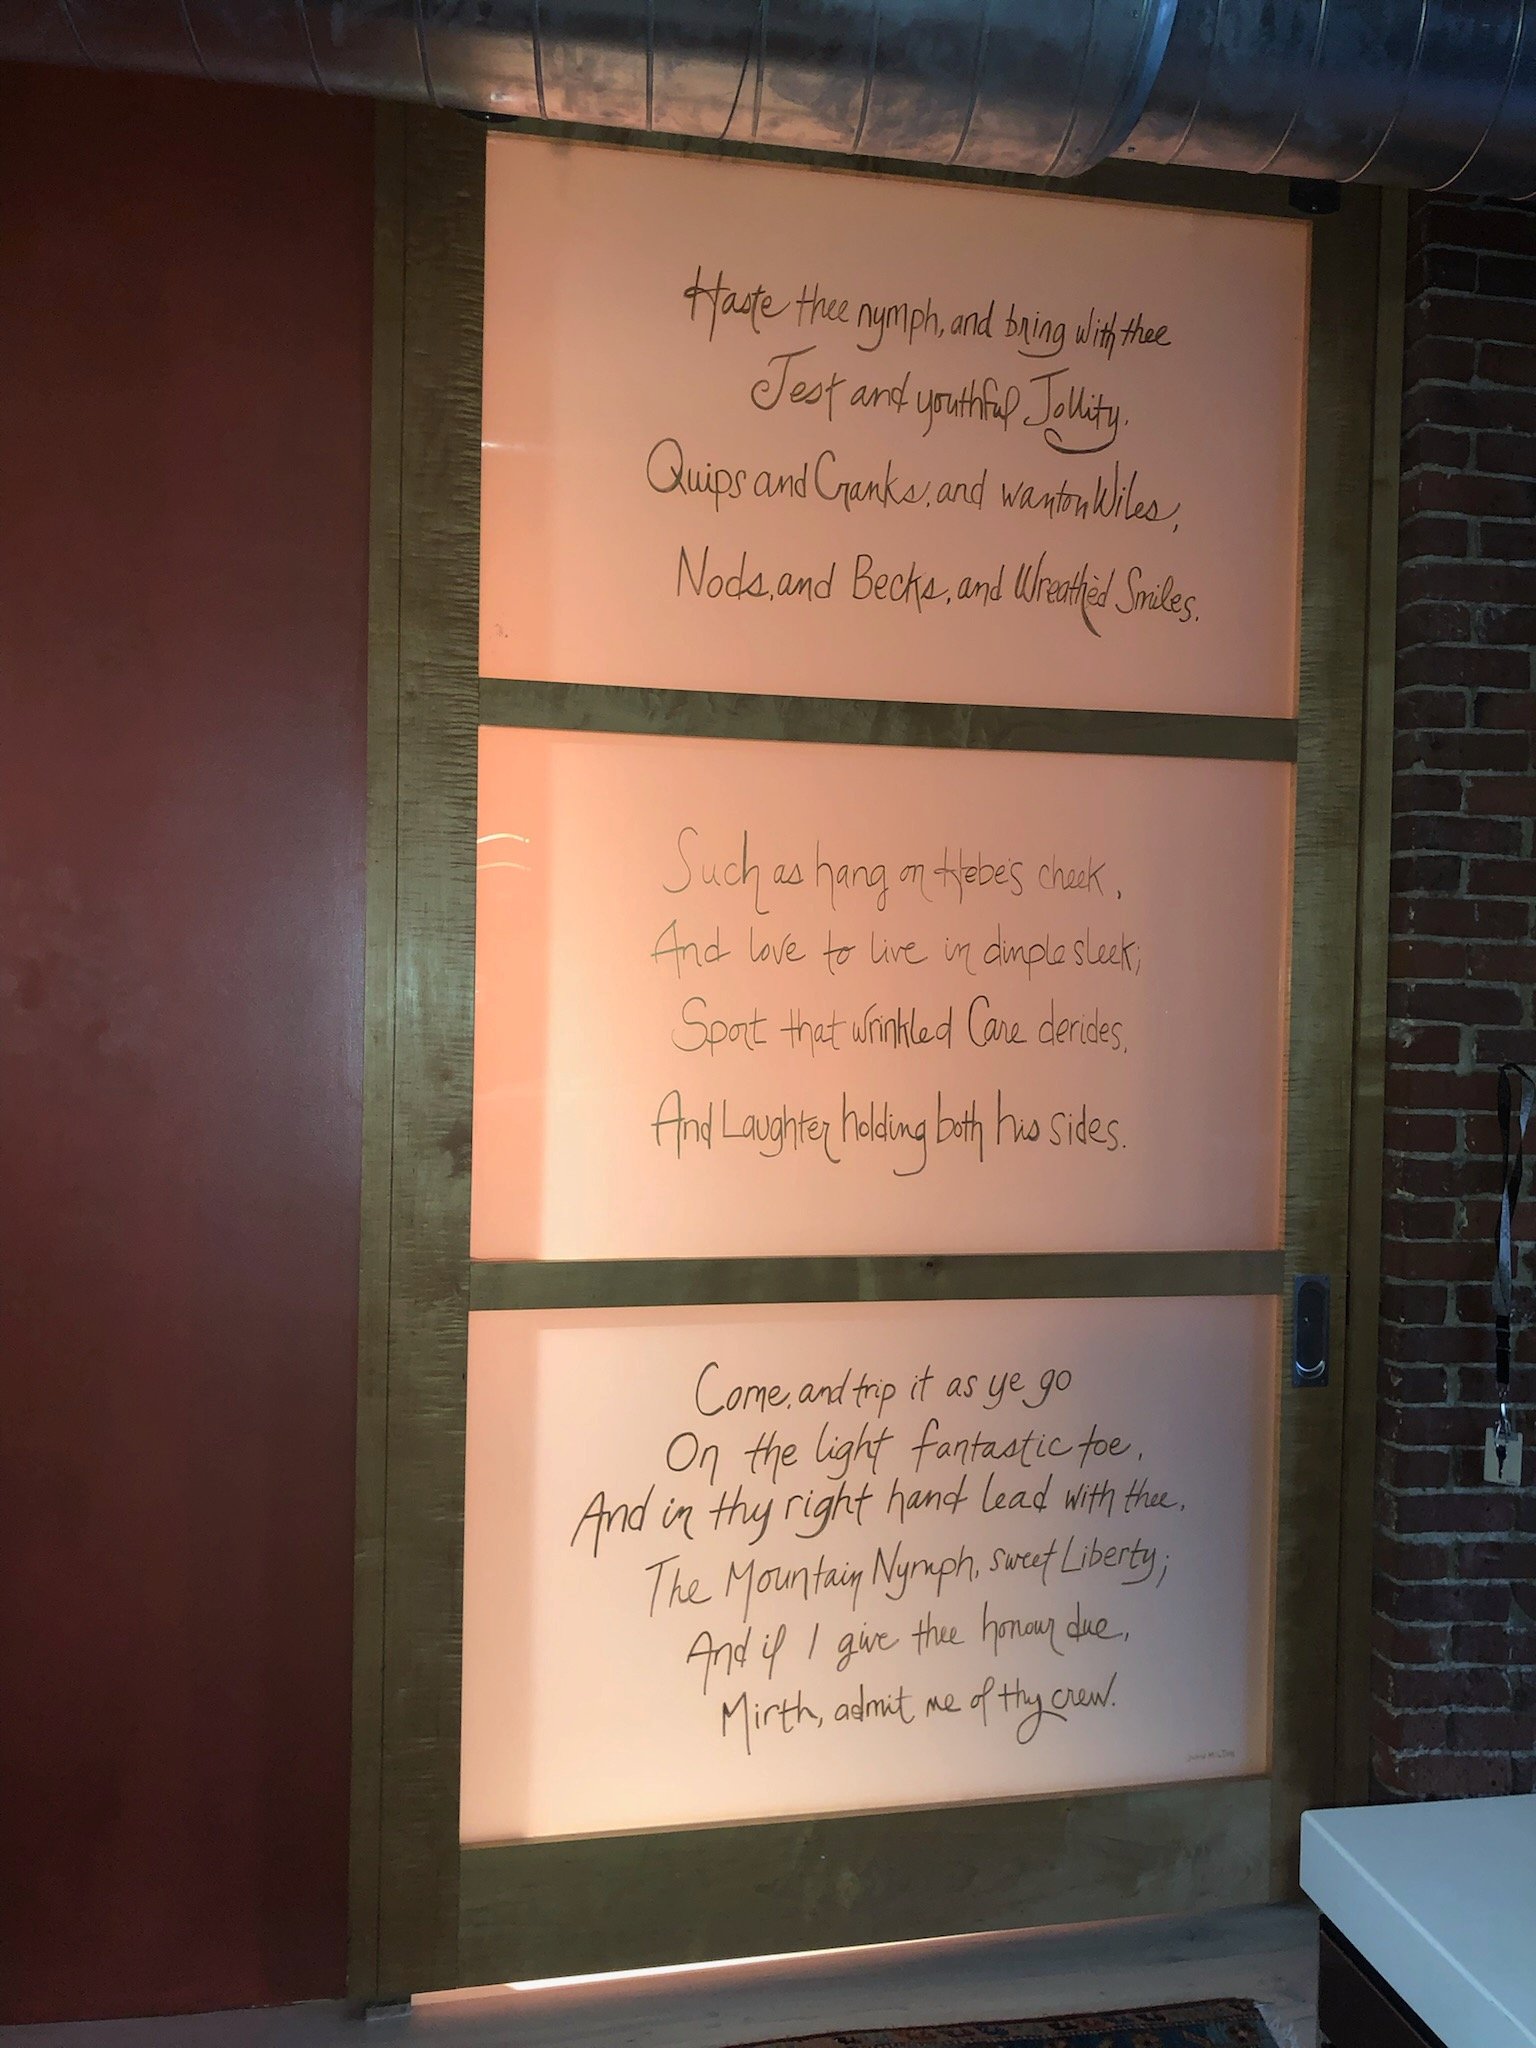 Haste thee nymph, and bring with thee
Jest and youthful Jollity.
Quips and Cranks, and wanton Wiles,
Nods, and Becks, and Wreathèd Smiles.
Such as hang on Hebe's cheek,
And love to live in dimple sleek;
Sport that wrinkled Care derides,
And Laughter holding both his sides.
Come, and trip it as ye go
On the light fantastic toe,
And in thy right hand lead with thee,
The Mountain Nymph, sweet Liberty;
And if I give thee honour due,
Mirth, admit me of thy crew.
John Milton